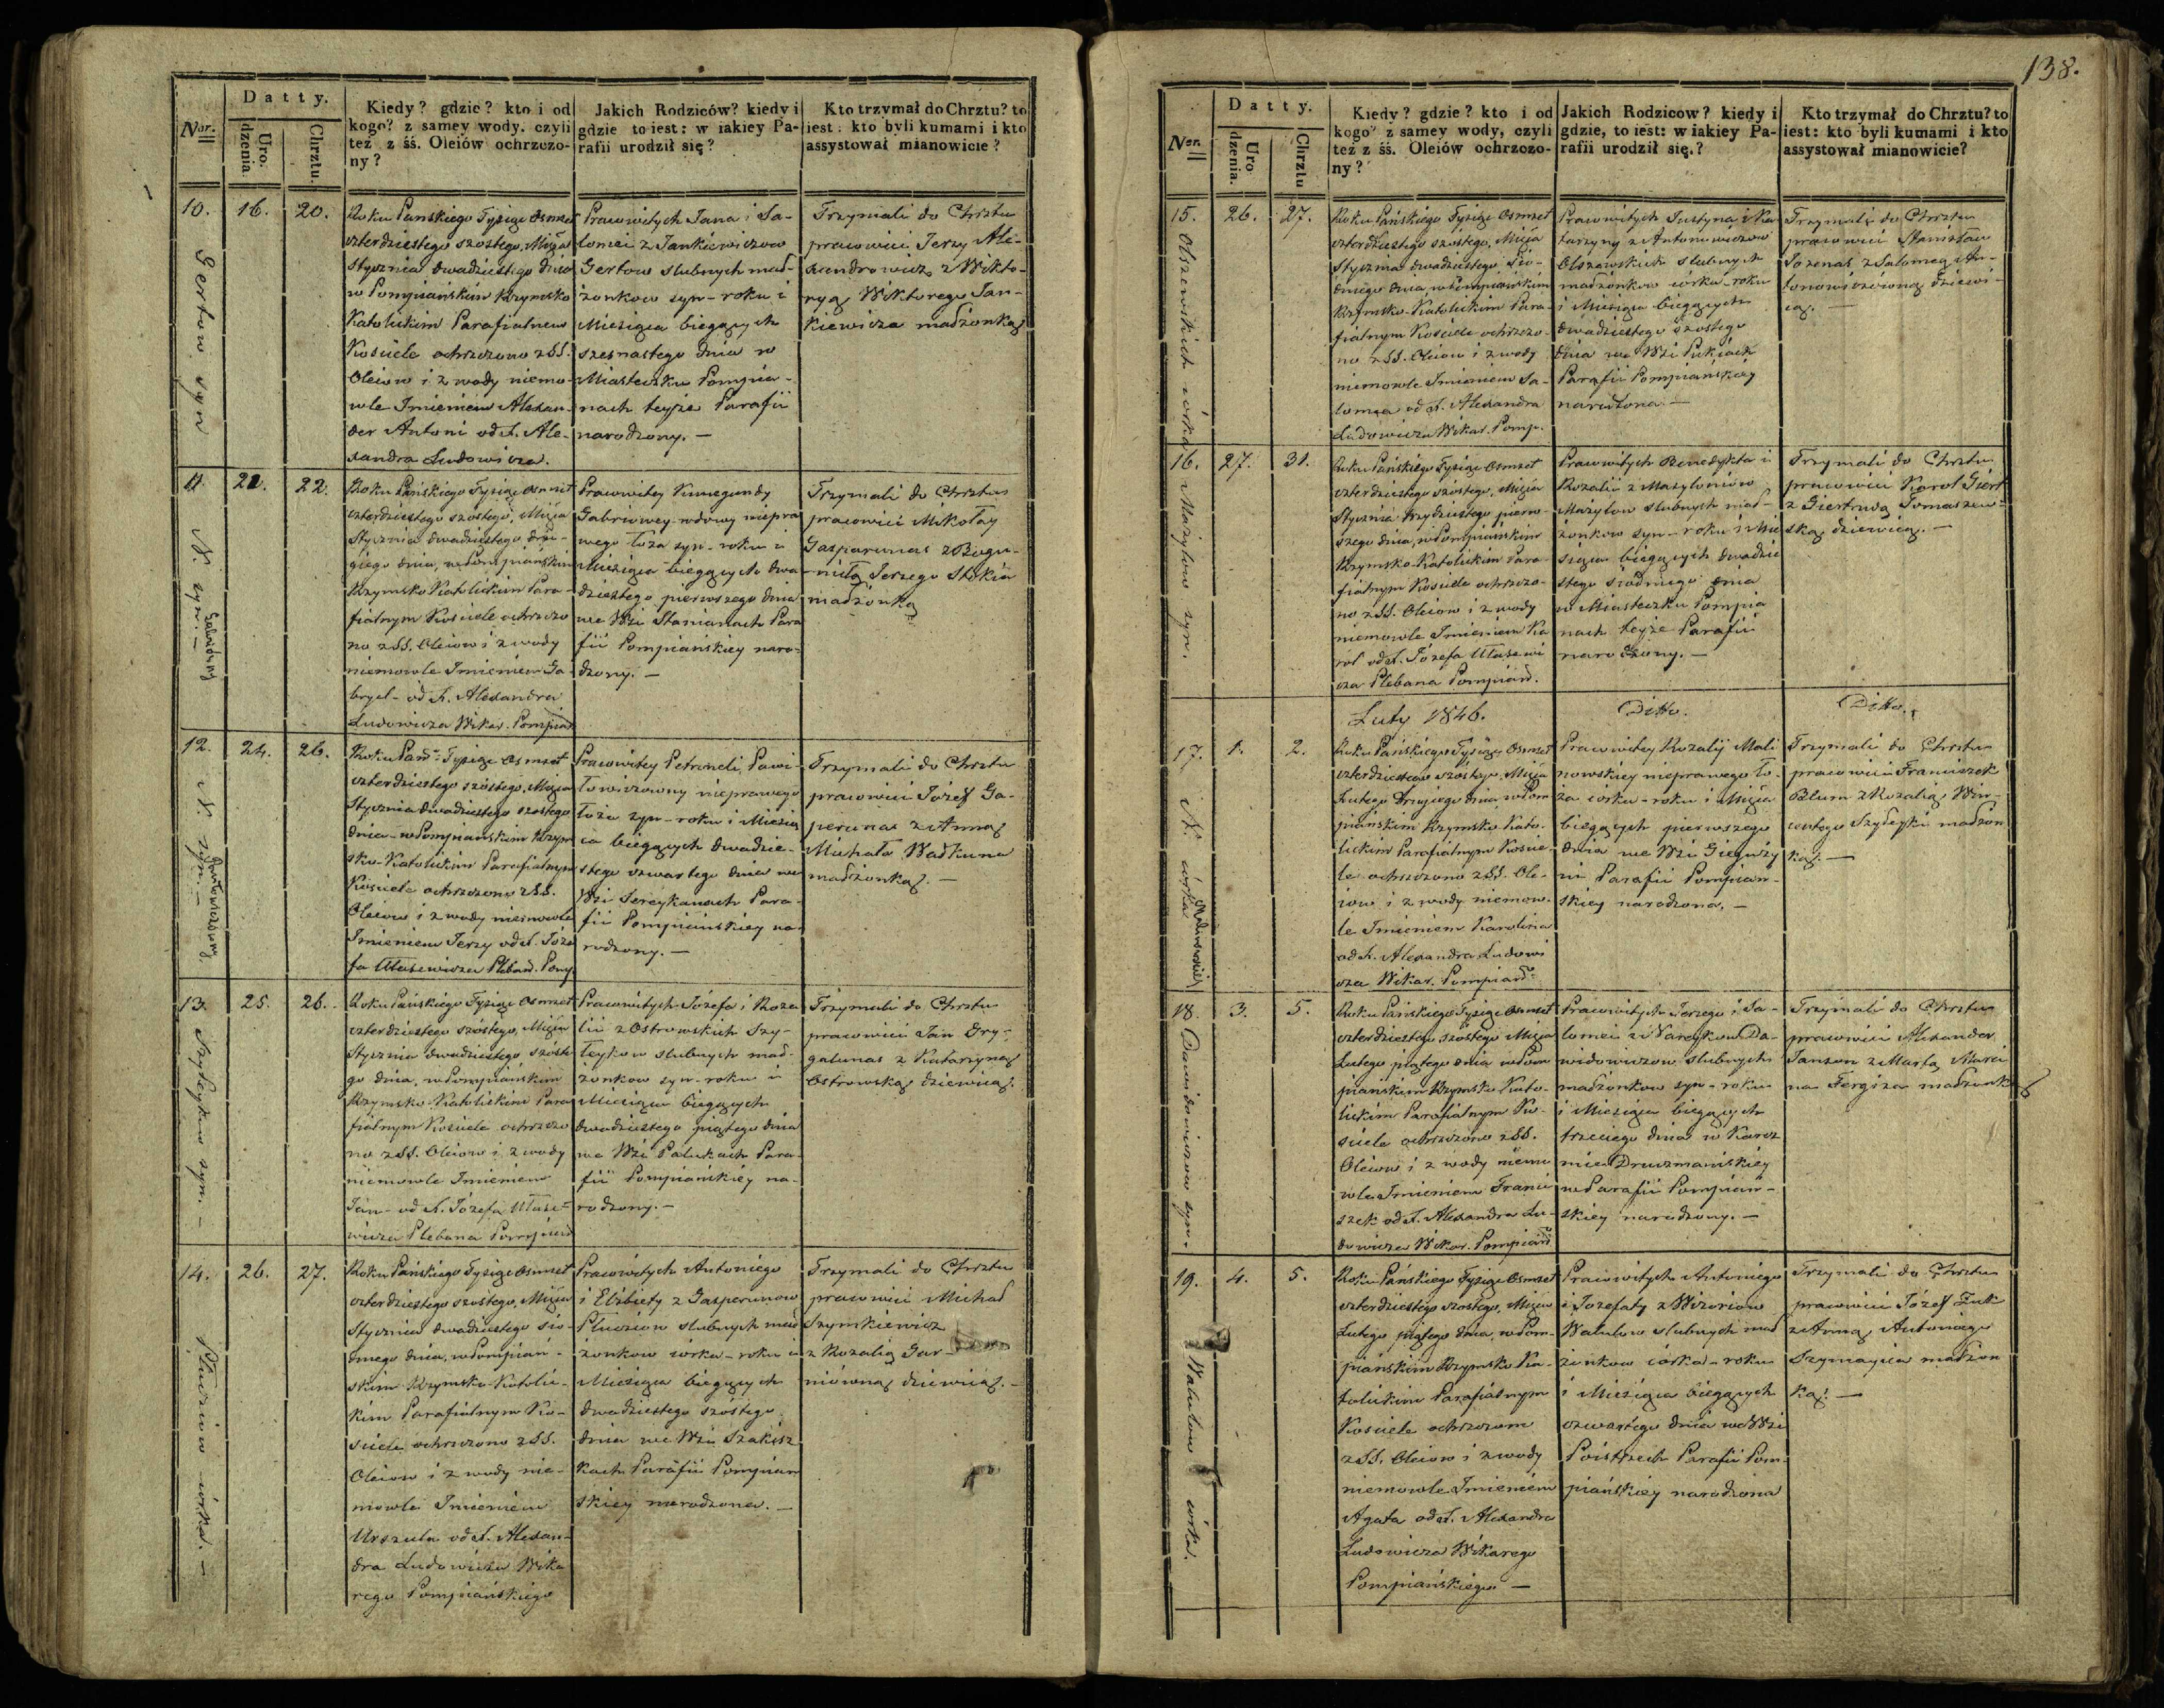 138.
Datty.
Nr.
Urodzenia.
Chrztu.
Kiedy? gdzie? kto i od
kogo? z samey wody, czyli
też z śś. Oleiów ochrzczo-
ny?
Jakich Rodziców? kiedy i
gdzie to iest: w iakiey Pa-
rafii urodził się?
Kto trzymał do Chrztu? to
iest: kto byli kumami i kto
assystował mianowicie?
10.
16.
20.
Gertow syn
Roku Pańskiego Tysiąc Osmset
czterdziestego szóstego, Miesiąca
Stycznia dwadziestego dnia
w Pompiańskim Rzymsko
Katolickim Parafialnem
Kościele ochrzczono z SS.
Oleiow i z wody niemo-
wle Imieniem Alexan-
der Antoni od X. Ale-
xandra Ludowicza.
Prawowitych Jana i Sa-
lomei z Jankiewiczow
Gertow slubnych mał-
żonkow syn - roku i
Miesiąca biegących
szesnastego dnia w
Miasteczku Pompia-
nach teyże Parafii
narodzony. —
Trzymali do Chrztu
pracowici Jerzy Ale-
xandrowicz z Wikto-
ryą Wiktorego Jan-
kiewicza małżonką
11.
21.
22.
N. syn. —
Roku Pańskiego Tysiąc Osmset
czterdziestego szóstego, Miesiąca
Stycznia dwadziestego dru-
giego dnia, w Pompiańskim
Rzymsko Katolickim Para-
fialnym Kościele ochrzczo
no z SS. Oleiow i z wody
niemowle Imieniem Ga-
bryel - od X. Alexandra
Ludowicza Wikar. Pompiań
Pracowitey Kunegundy
Gabriowey wdowy niepra
wego łoża syn - roku i
Miesiąca biegących dwa
dziestego pierwszego dnia
we Wsi Stanianach Para
fii Pompiańskiey naro-
dzony. —
Trzymali do Chrztu
pracowici Mikołay
Gasparunas z Bogu-
miłą Jerzego Stokia
małżonką
12.
24.
26.
N. syn. —
Roku Pań. Tysiąc Osmset
czterdziestego szóstego, Miesiąca
Stycznia dwadziestego szóstego
dnia - w Pompiańskim Rzym
sko-Katolickim Parafialnym
Kościele ochrzczono z SS.
Oleiow i z wody niemowle
Imieniem Jerzy od X. Józe
fa Utasewicza Pleban. Pomp.
Pracowitey Petroneli Pawi-
łowiczowny nieprawego
łoża syn - roku i Miesią
ca biegących dwadzie-
stego czwartego dnia we
Wsi Sereykanach Para-
fii Pompiańskiey na-
rodzony. —
Trzymali do Chrztu
pracowici Józef Ga-
perunas z Anną
Michała Wałkuna
małżonką. —
13.
25.
26.
Szyłeykow syn. —
Roku Pańskiego Tysiąc Osmset
czterdziestego szóstego, Miesiąca
Stycznia dwadziestego szóste
go dnia, w Pompiańskim
Rzymsko Katolickim Para
fialnym Kościele ochrzczo
no z SS. Oleiow i z wody
niemowle Imieniem
Jan - od X. Józefa Utase-
wicza Plebana Pompiań
Pracowitych Józefa i Roza
lii z Ostrowskich Szy-
łeykow slubnych mał-
żonkow syn - roku i
Miesiąca biegących
dwadziestego piątego dnia
we Wsi Palukach Para-
fii Pompiańskiey na-
rodzony. —
Trzymali do Chrztu
pracowici Jan Dry-
galunas z Katarzyną
Ostrowską dziewicą.
14.
26.
27.
córka. —
Roku Pańskiego Tysiąc Osmset
czterdziestego szóstego, Miesiąca
Stycznia dwadziestego sió-
dmego dnia, w Pompiań-
skim Rzymsko Katolic-
kim Parafialnym Ko-
ściele ochrzczono z SS.
Oleiow i z wody nie-
mowle Imieniem
Urszula od X. Alexan-
dra Ludowicza Wika
rego Pompiańskiego
Pracowitych Antoniego
i Elżbiety z Gasperunow
slubnych mał
żonkow córka - roku i
Miesiąca biegących
dwadziestego szóstego
dnia we Wsi Szakisz
kach Parafii Pompiań
skiey narodzona. —
Trzymali do Chrztu
pracowici Michał
Szymkiewicz
z Rozalią Gar-
niówną dziewicą. —
Datty.
Nr.
Urodzenia.
Chrztu
Kiedy? gdzie? kto i od
kogo? z samey wody, czyli
też z śś. Oleiów ochrzczo-
ny?
Jakich Rodziców? kiedy i
gdzie, to iest: w iakiey Pa-
rafii urodził się.?
Kto trzymał do Chrztu? to
iest: kto byli kumami i kto
assystował mianowicie?
15.
26.
27.
Olszewskich córka
Roku Pańskiego Tysiąc Osmset
czterdziestego szóstego, Miesiąca
Stycznia dwadziestego sió-
dmego dnia, w Pompiańskim
Rzymsko-Katolickim Para-
fialnym Kościele ochrzczo-
no z SS. Oleiow i z wody
niemowle Imieniem Sa-
lomea od X. Alexandra
Ludowicza Wikar. Pomp.
Pracowitych Justyna i Ka
tarzyny z Antonowiczow
Olszewskich slubnych
małżonkow córka - roku
i Miesiąca biegących
dwadziestego szóstego
dnia we Wsi Pukiach
Parafii Pompiańskiey
narodzona. —
Trzymali do Chrztu
pracowici Stanisław
Sozenas z Salomeą An-
tonowiczówną dziewi-
cą. —
16.
27.
31.
Mazylow syn.
Roku Pańskiego Tysiąc Osmset
czterdziestego szóstego, Miesiąca
Stycznia trzydziestego pierw-
szego dnia, w Pompiańskim
Rzymsko-Katolickim Para-
fialnym Kościele ochrzczo-
no z SS. Oleiow i z wody
niemowle Imieniem Ka
rol od X. Józefa Utasewi
cza Plebana Pompiań.
Pracowitych Benedykta i
Rozalii z Mazyloniów
Mazylow slubnych mał-
żonkow syn - roku i Mie
siąca biegących dwadzie
stego siódmego dnia
w Miasteczku Pompia
nach teyże Parafii
narodzony. —
Trzymali do Chrztu
pracowici Karol Giert
z Giertrudą Tomaszew-
ską dziewicą. —
Luty 1846.
Ditto.
Ditto.
17.
1.
2.
N. córka
Malinowskiey
Roku Pańskiego Tysiąc Osmset
czterdziestego szóstego, Miesiąca
Lutego drugiego dnia w Pom
piańskim Rzymsko Kato-
lickim Parafialnym Koście-
le ochrzczono z SS. Ole-
iow i z wody niemow-
le Imieniem Karolina
od X. Alexandra Ludowi
cza Wikar. Pompiań.
Pracowitey Rozalij Mali
nowskiey nieprawego ło-
ża córka - roku i Miesiąca
biegących pierwszego
dnia we Wsi Gieguży
ni Parafii Pompiań-
skiey narodzona. —
Trzymali do Chrztu
pracowici Franciszek
Blum z Rozalią Win-
centego Szyłeyki małżon
ką. —
18.
3.
5.
Dawidowiczow syn.
Roku Pańskiego Tysiąc Osmset
czterdziestego szóstego Miesiąca
Lutego piątego dnia w Pom
piańskim Rzymsko Kato-
lickim Parafialnym Ko-
ściele ochrzczono z SS.
Oleiow i z wody niemo
wle Imieniem Franci
szek od X. Alexandra Lu-
dowicza Wikar. Pompiań
Pracowitych Jerzego i Sa-
lomei z Nareykow Da-
widowiczow slubnych
małżonkow syn - roku
i Miesiąca biegących
trzeciego dnia w Karcz
mie Druczmańskiey
w Parafii Pompiań-
skiey narodzony. —
Trzymali do Chrztu
pracowici Alexander
Janson z Martą Marci
na Fergiza małżonką
19.
4.
5.
Watulow córka.
Roku Pańskiego Tysiąc Osmset
czterdziestego szóstego, Miesiąca
Lutego piątego dnia, w Pom-
piańskim Rzymsko Ka-
tolickim Parafialnym
Kościele ochrzczono
z SS. Oleiow i z wody
niemowle Imieniem
Agata od X. Alexandra
Ludowicza Wikarego
Pompiańskiego —
Pracowitych Antoniego
i Jozefaty z Wizoriow
Watulow slubnych mał
żonkow córka - roku
i Miesiąca biegących
czwartego dnia we Wsi
Poistrzech Parafii Pom-
piańskiey narodzona
Trzymali do Chrztu
pracowici Józef Zuk
z Anną Antoniego
Szymaycia małżon
ką. —